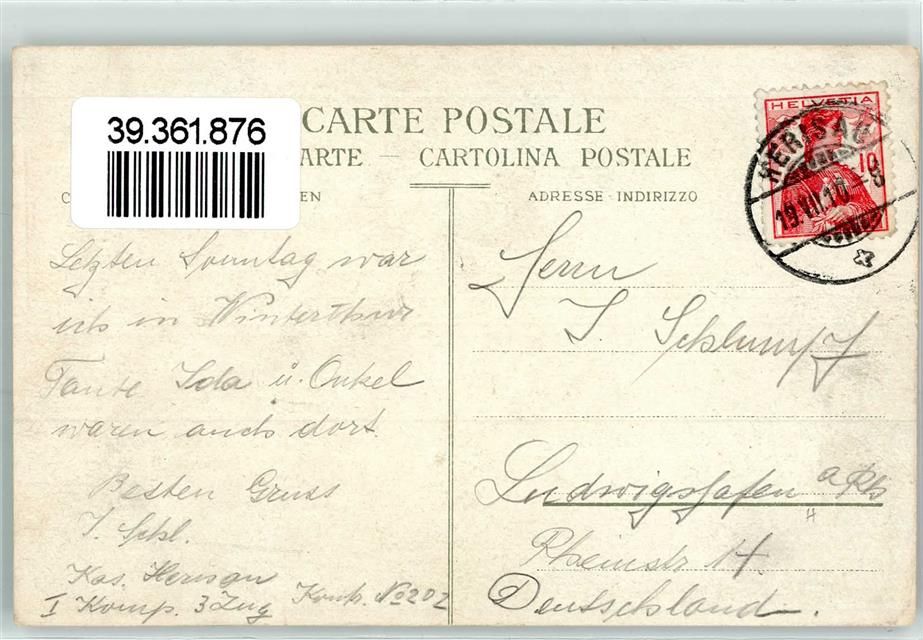 39.361.876
CARTE POSTALE
ARTE — CARTOLINA POSTALE
C EN
ADRESSE - INDIRIZZO
HELVETIA
10
HERISAU
19.VII.10 -8
Letzten Sonntag war
ich in Winterthur
Tante Ida u. Onkel
waren auch dort.
Besten Gruss
J. Schl.
Kas. Herisau
I Komp. 3 Zug Kontr. No 202
Herrn
J. Schlumpf
Ludwigshafen a Rh
Rheinstr 14
Deutschland.